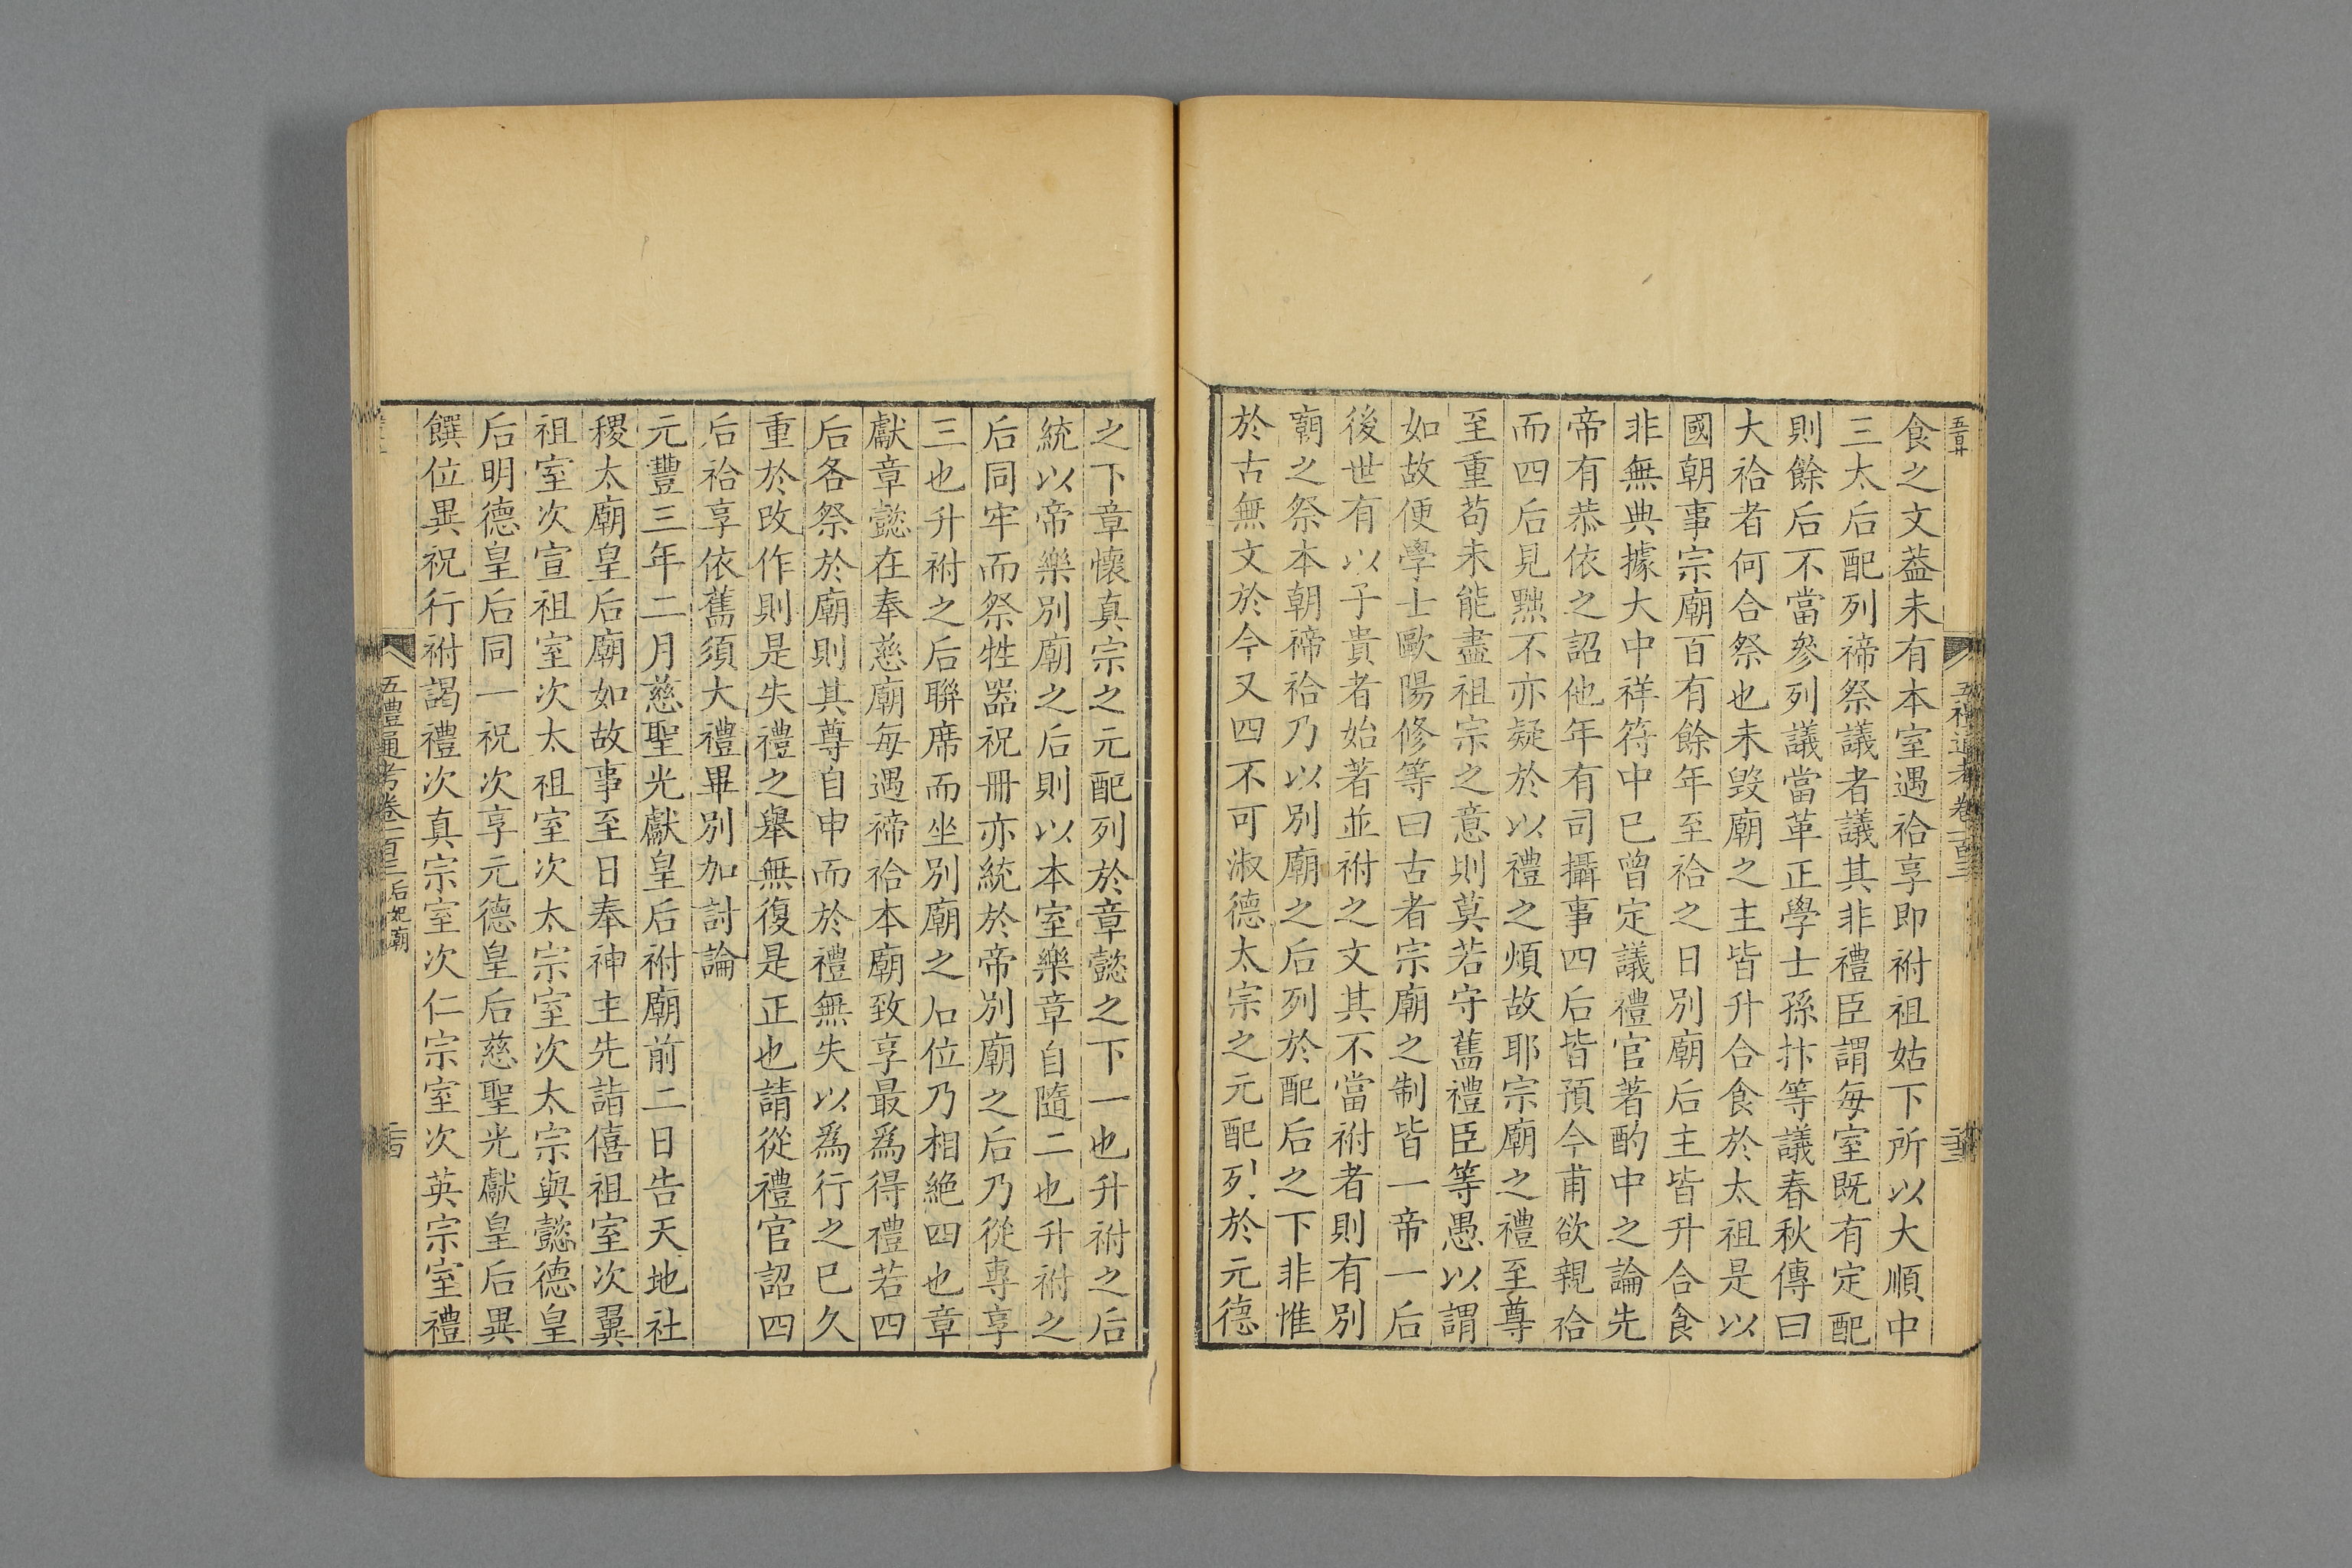 食之文葢未有本室遇祫享即祔祖姑下所以大順中
三太后配列禘祭議者議其非禮臣謂每室既有定配
則餘后不當參列議當革正學士孫抃等議春秋傳曰
大祫者何合祭也未毀廟之主皆升合食於太祖是以
國朝事宗廟百有餘年至祫之日別廟后主皆升合食
非無典據大中祥符中已曾定議禮官著酌中之論先
帝有恭依之詔他年有司攝事四后皆預今甫欲親祫
而四后見黜不亦疑於以禮之煩故耶宗廟之禮至尊
至重苟未能盡祖宗之意則莫若守舊禮臣等愚以謂
如故便學士歐陽修等曰古者宗廟之制皆一帝一后
後世有以子貴者始著並祔之文其不當祔者則有別
廟之祭本朝禘祫乃以別廟之后列於配后之下非惟
於古無文於今又四不可淑德太宗之元配列於元德
之下章懷真宗之元配列於章懿之下一也升祔之后
統以帝樂別廟之后則以本室樂章自隨二也升祔之
后同牢而祭牲器祝冊亦統於帝別廟之后乃從專享
三也升祔之后聯席而坐別廟之后位乃相絶四也章
獻章懿在奉慈廟每遇禘祫本廟致享最爲得禮若四
后各祭於廟則其尊自申而於禮無失以爲行之已久
重於改作則是失禮之舉無復是正也請從禮官詔四
后祫享依舊須大禮畢別加討論
元豐三年二月慈聖光獻皇后祔廟前二日告天地社
稷太廟皇后廟如故事至日奉神主先詣僖祖室次翼
祖室次宣祖室次太祖室次太宗室次太宗與懿德皇
后明德皇后同一祝次享元德皇后慈聖光獻皇后異
饌位異祝行祔謁禮次真宗室次仁宗室次英宗室禮
五禮通考卷一百三 后妃廟